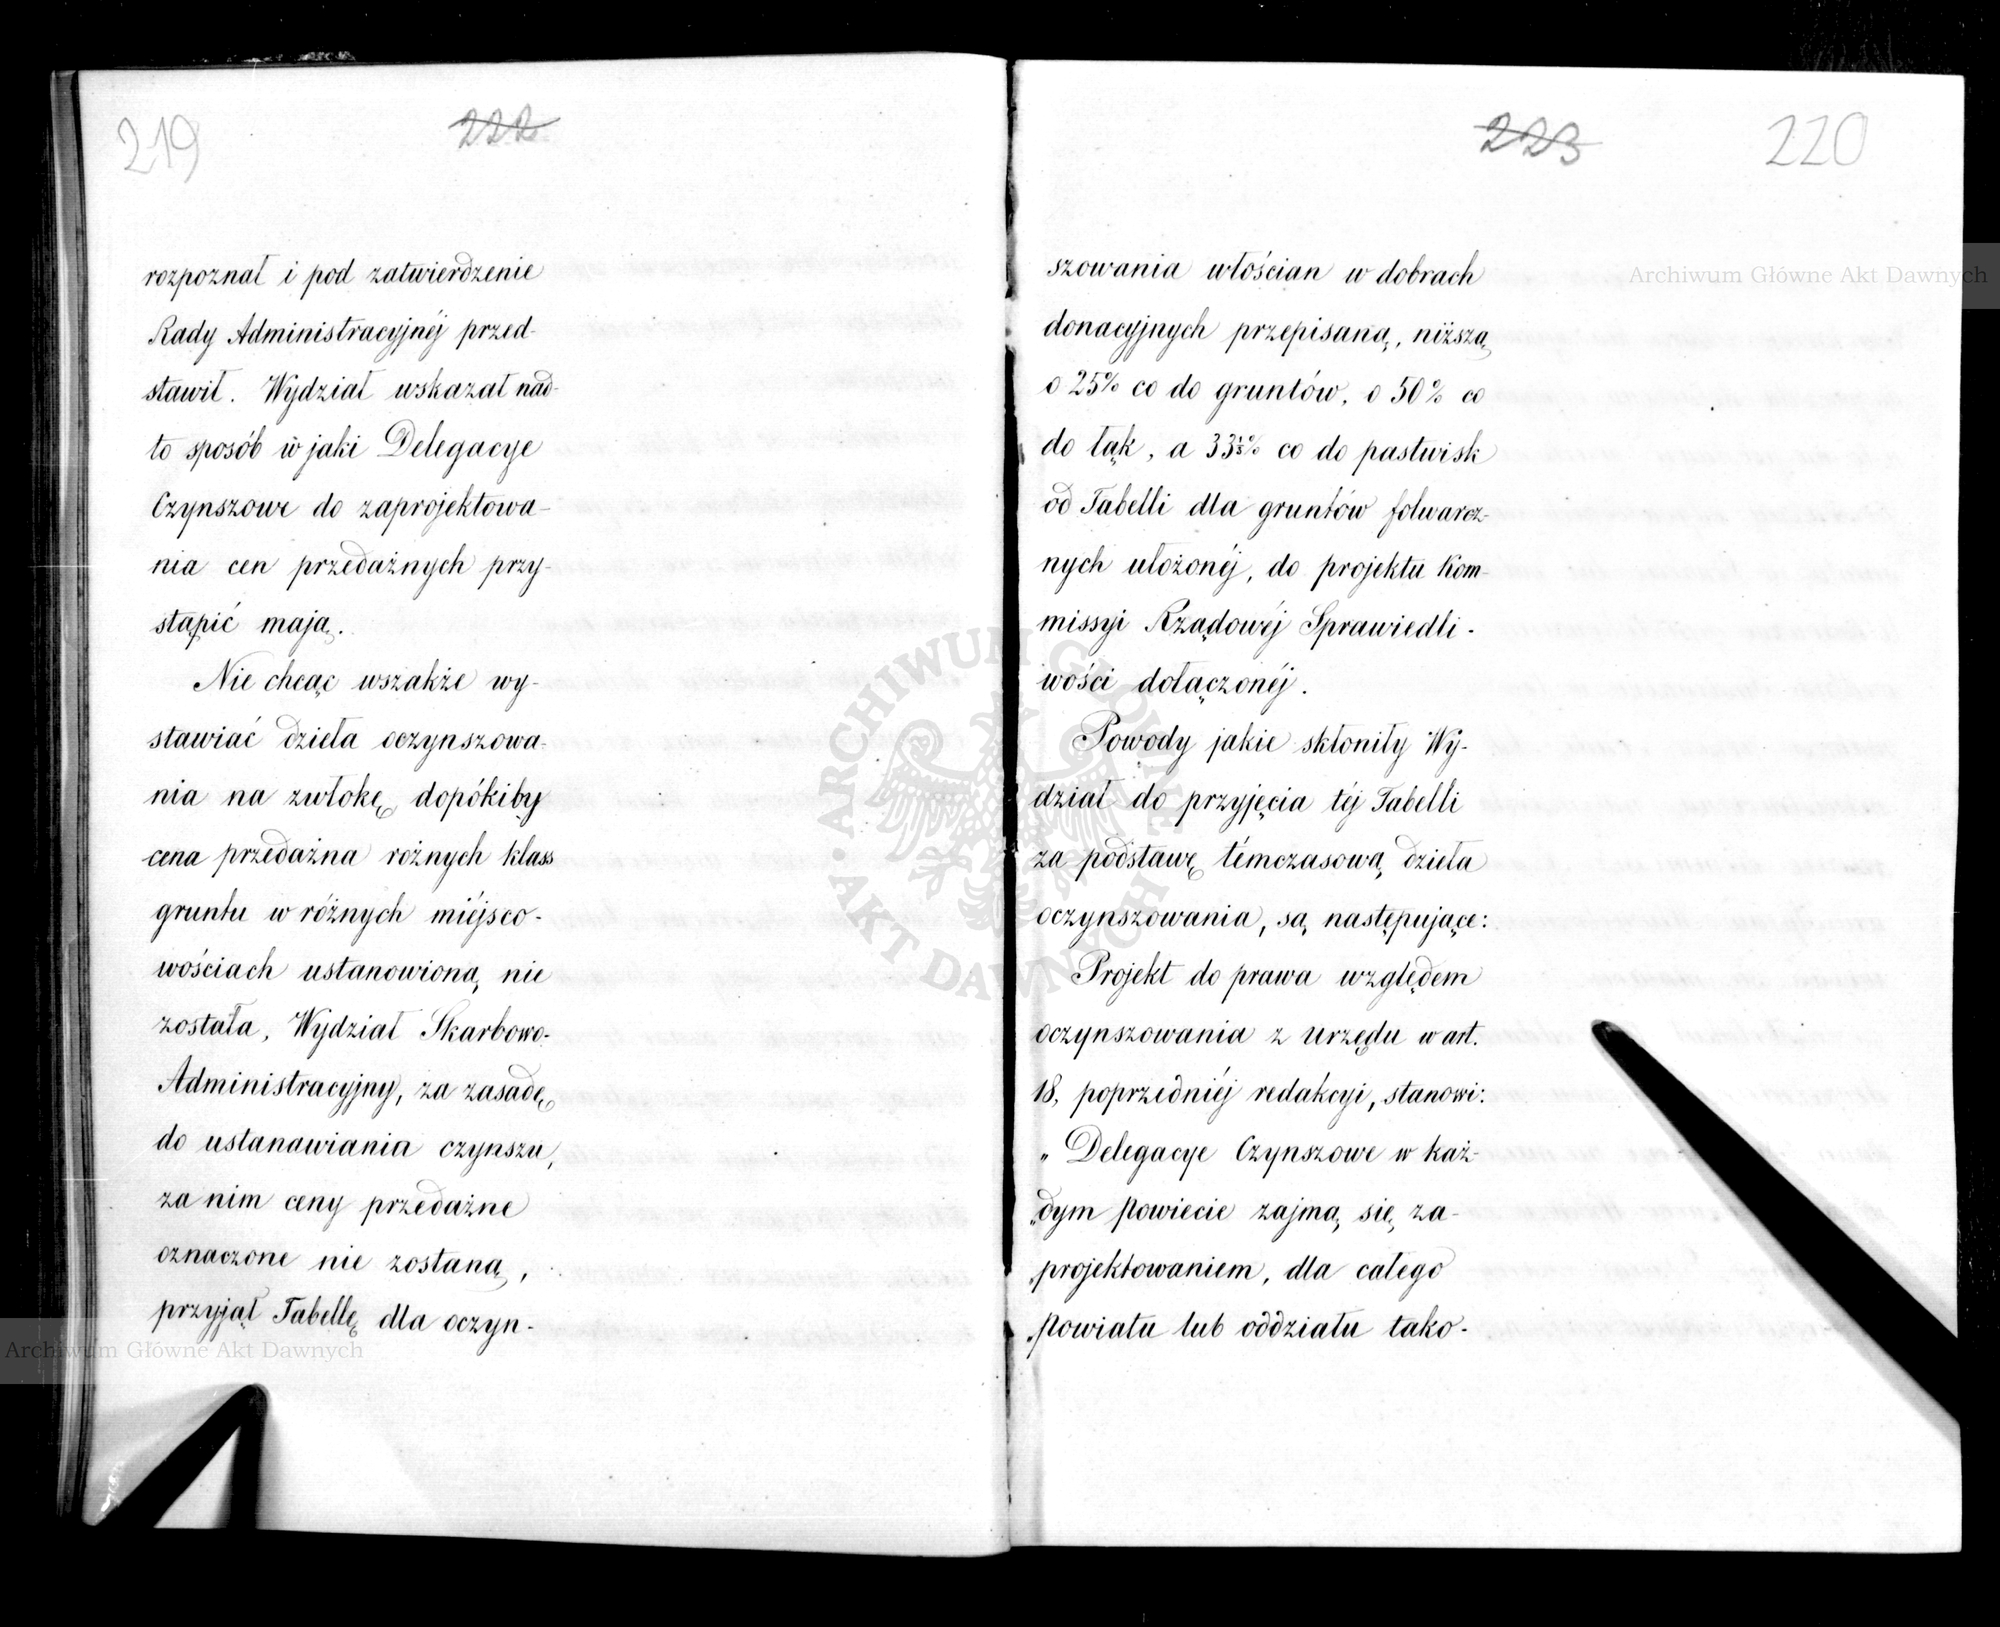 219
222
rozpoznał i pod zatwierdzenie
Rady Administracyjnéj przed-
stawił. Wydział wskazał nad-
to sposób w jaki Delegacye
Czynszowe do zaprojektowa-
nia cen przedażnych przy-
stąpić mają.
Nie chcąc wszakże wy-
stawiać dzieła oczynszowa-
nia na zwłokę dopókiby
cena przedażna rożnych klass
gruntu w różnych miéjsco-
wościach ustanowioną nie
została, Wydział Skarbowo-
Administracyjny, za zasadę
do ustanawiania czynszu,
za nim ceny przedażne
oznaczone nie zostaną,
przyjął Tabellę dla oczyn-
223
220
szowania włościan w dobrach
donacyjnych przepisaną, niższą
o 25% co do gruntów, o 50% co
do łąk, a 33⅓% co do pastwisk
od Tabelli dla gruntów folwarcz-
nych ułożonéj, do projektu Kom-
missyi Rządowéj Sprawiedli-
wości dołączonéj.
Powody jakie skłoniły Wy-
dział do przyjęcia téj Tabelli
za podstawę témczasową dzieła
oczynszowania, są następujące:
Projekt do prawa względem
oczynszowania z urzędu w art.
18, poprzedniéj redakcyi, stanowi:
„Delegacye Czynszowe w każ-
„dym Powiecie zajmą się za-
„projektowaniem, dla całego
„Powiatu lub oddziału tako-
Archiwum Główne Akt Dawnych
Archiwum Główne Akt Dawnych
ARCHIWUM GŁÓWNE • AKT DAWNYCH •